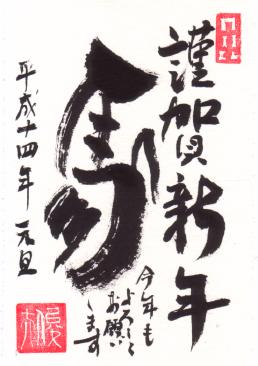 謹賀新年
馬
今年も
よろしく
お願い
します
平成十四年 元旦